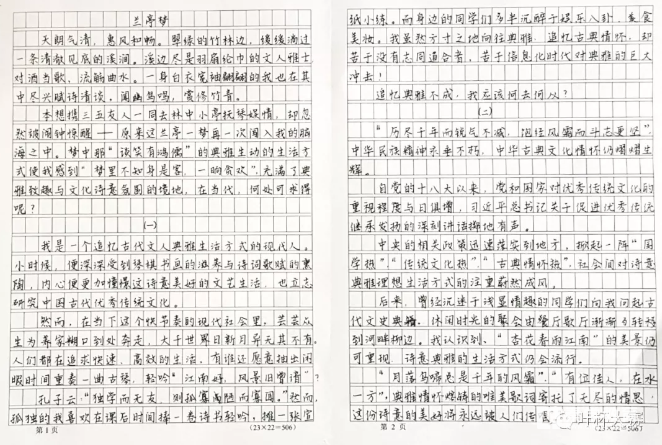 兰亭梦
天朗气清，惠风和畅。翠绿的竹林边，缓缓淌过
一条清澈见底的溪涧。溪边尽是羽扇纶巾的文人雅士
对酒当歌，流觞曲水。一身白衣宽袖翩翩的我也在其
中尽兴赋诗清谈。闻幽鸟鸣，赏修竹青。
本想携三五友人一同去林中小亭抚琴娱情，却忽
然被闹钟惊醒——原来这兰亭一梦再一次闯入我的脑
海之中。梦中那“谈笑有鸿儒”的典雅生动的生活方
式使我感到“梦里不知身是客，一晌贪欢”。充满了典
雅致趣与文化诗意氛围的境地，在当代，何处可求得
呢？
（一）
我是一个追忆古代文人典雅生活方式的现代人。
小时候，便深深受到琴棋书画的滋养与诗词歌赋的熏
陶，内心便更加憧憬这诗意美好的文艺生活，也立志
研究中国古代优秀传统文化。
然而，在当下这个快节奏的现代社会里，芸芸众
生为养家糊口到处奔走，大千世界日新月异无其不有。
人们都在追求快速、高效的生活，有谁还愿意抽出闲
暇时间重奏一曲古琴，轻吟“江南好，风景旧曾谙”？
孔子云：“独学而无友，则孤寡陋而寡闻。”然而，
孤独的我喜欢在课后时间捧一卷诗书轻吟，摊一张宣
第 1 页
（23×22＝506）
纸小练。而身边的同学们多半沉醉于娱乐八卦，美食
美妆。我虽然才之地向往典雅，追忆古典情怀，却
苦于没有志同道合者，苦于信息化时代对典雅的巨大
冲击！
追忆典雅不成，我应该何去何从？
（二）
“历尽千年而锐气不减，饱经风霜而斗志更坚”，
中华民族精神永垂不朽，中华古典文化情怀仍熠熠生
辉。
自党的十八大以来，党和国家对优秀传统文化的
重视程度与日俱增，习近平总书记关于促进优秀传统
继承发扬的深刻讲话掷地有声。
中央的相关政策迅速落实到地方，掀起一阵“国
学热”“传统文化热”“古典情怀热”，社会间对诗意
典雅理想生活方式的注重蔚然成风。
后来，曾经沉迷于浅显情趣的同学们向我问起古
代文史典籍，休闲时光的聚会由餐厅歌厅渐渐转移
到河畔柳边。我认识到，“杏花春雨江南”的美景仍
可重现，诗意典雅的生活方式仍会流行。
“月落乌啼总是千年的风霜”，“有位佳人，在水
一方”，典雅情怀熔铸的唯美歌词寄托了无尽的情思，
这份诗意的美好将永远被人们传唱
第 2 页
（23×22＝506）